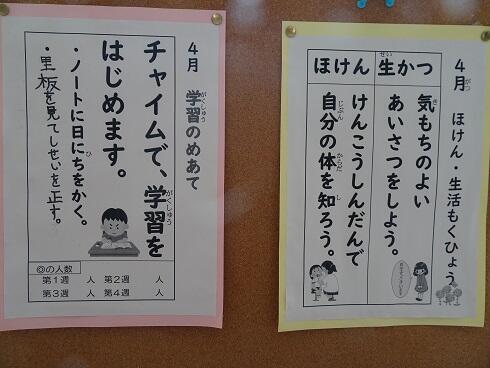 4月 ほけん・生活もくひょう
生かつ
気もちのよい
あいさつをしよう。
ほけん
けんこうしんだんで
自分の体を知ろう。
4月 学習のめあて
チャイムで、学習を
はじめます。
・ノートに日にちをかく。
・黒板を見てしせいを正す。
◎の人数
第1週 人 第2週 人
第3週 人 第4週 人